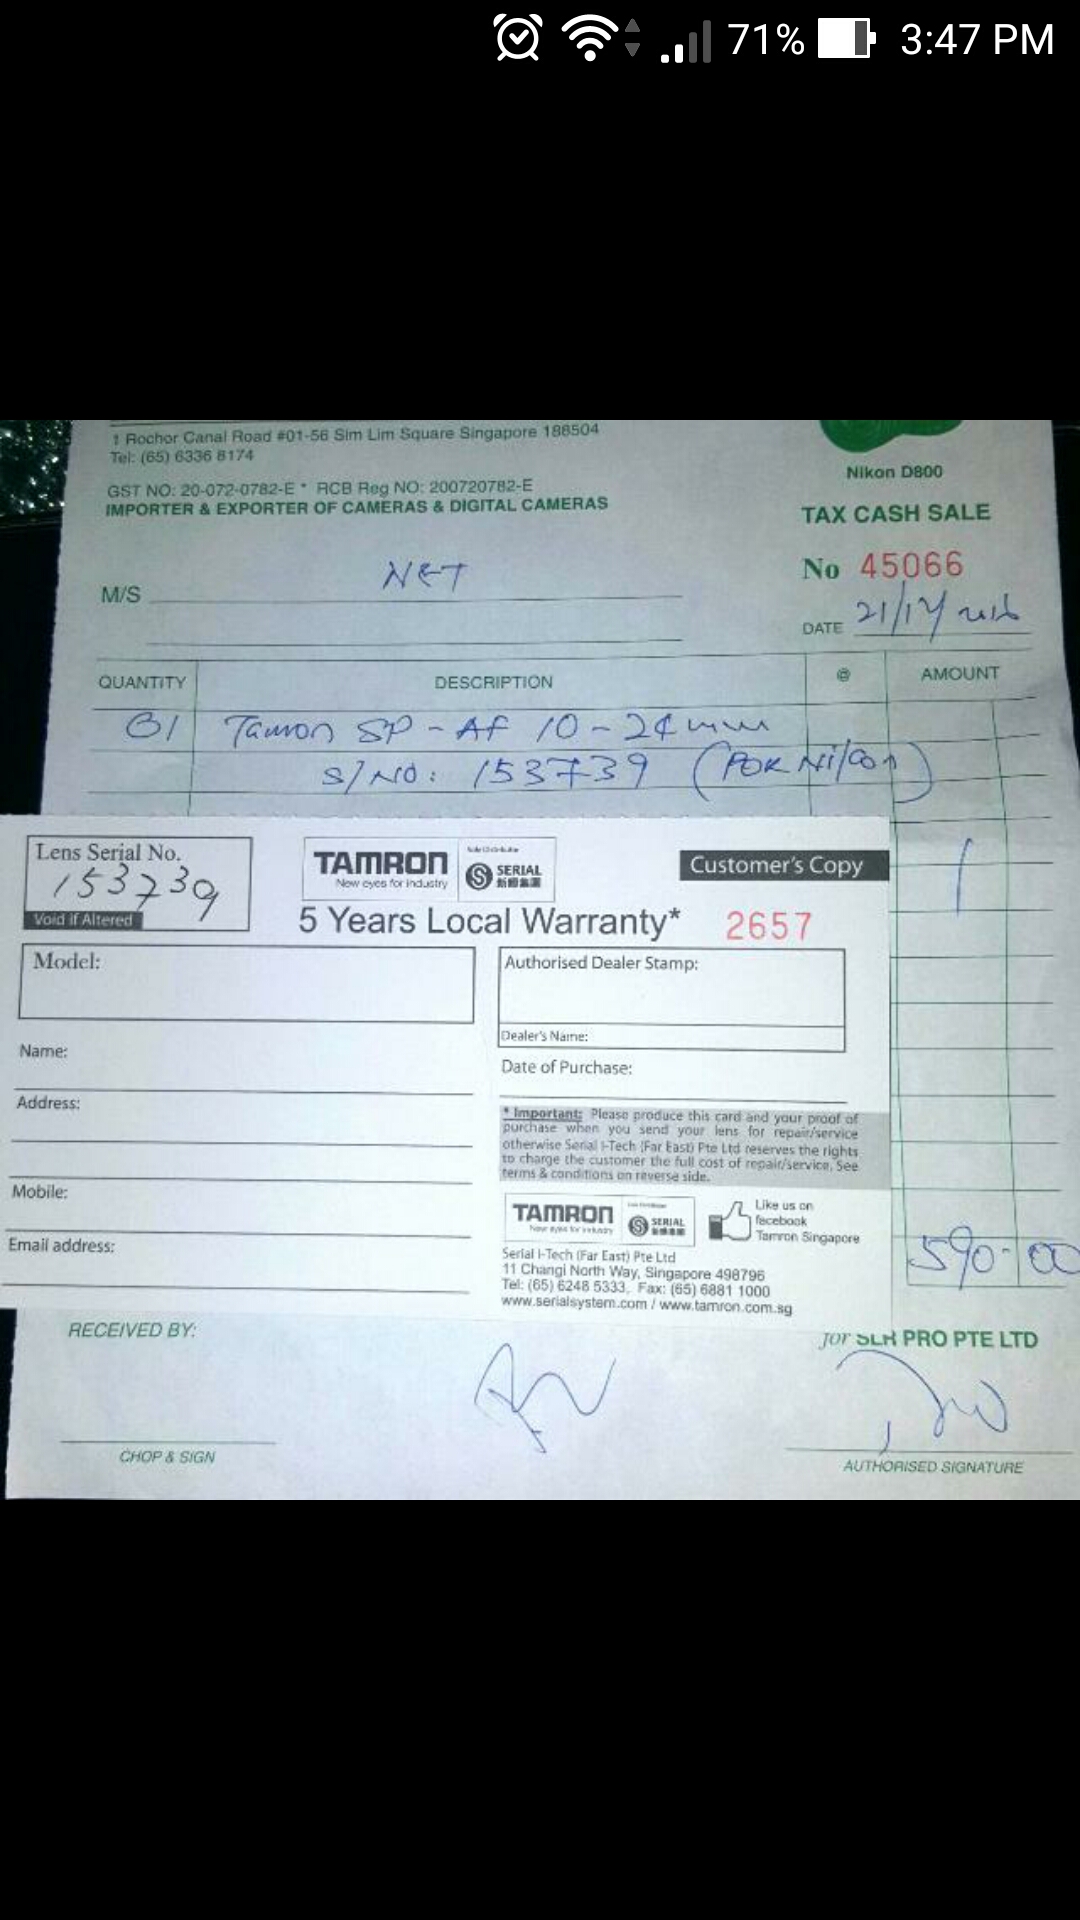 71% 3:47 PM
1 Rochor Canal Road #01-56 Sim Lim Square Singapore 188504
Tel: (65) 6336 8174
GST NO: 20-072-0782-E * RCB Reg NO: 200720782-E
IMPORTER & EXPORTER OF CAMERAS & DIGITAL CAMERAS
Nikon D800
TAX CASH SALE
No 45066
M/S NET
DATE 21/
QUANTITY DESCRIPTION @ AMOUNT
01 Tamron SP-AF 10-24mm
S/NO: 153739 (FOR Nikon)
Lens Serial No.
153739
Void if Altered
TAMRON
New eyes for industry
Sole Distributor
SERIAL
新曄集團
Customer's Copy
5 Years Local Warranty* 2657
Model:
Authorised Dealer Stamp:
Dealer's Name:
Name:
Date of Purchase:
Address:
* Important: Please produce this card and your proof of
purchase when you send your lens for repair/service
otherwise Serial I-Tech (Far East) Pte Ltd reserves the rights
to charge the customer the full cost of repair/service. See
terms & conditions on reverse side.
Mobile:
TAMRON
New eyes for industry
SERIAL
Like us on
facebook
Tamron Singapore
Email address:
Serial I-Tech (Far East) Pte Ltd
11 Changi North Way, Singapore 498796
Tel: (65) 6248 5333, Fax: (65) 6881 1000
www.serialsystem.com / www.tamron.com.sg
590.00
RECEIVED BY:
for SLR PRO PTE LTD
CHOP & SIGN
AUTHORISED SIGNATURE